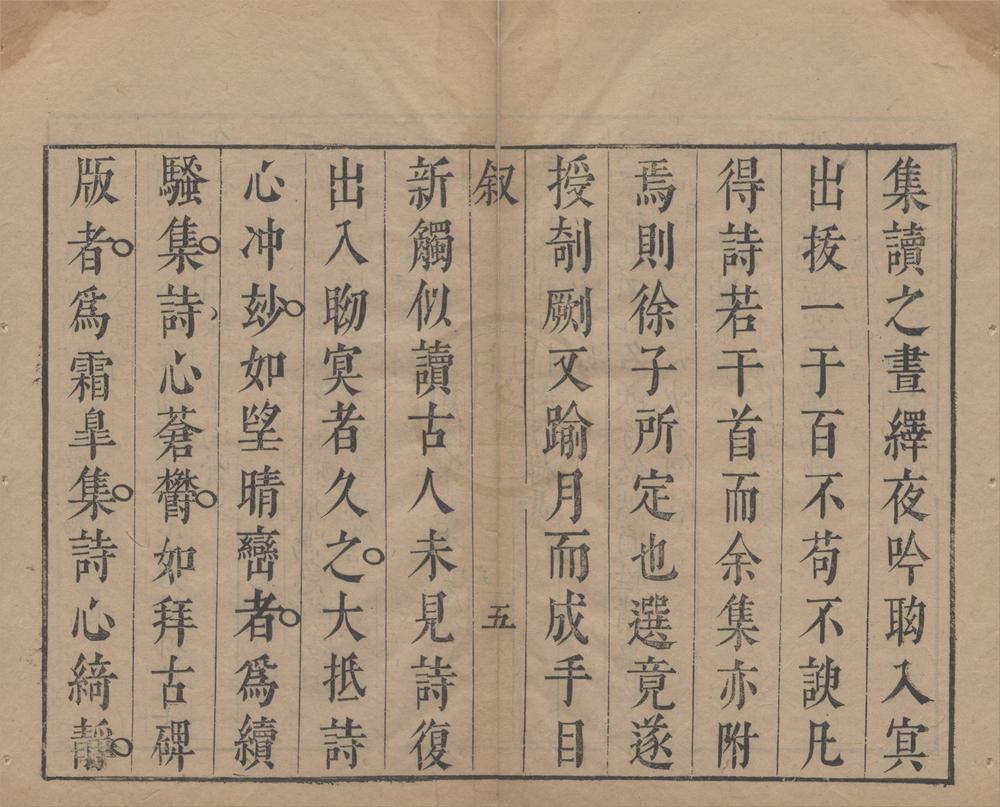 集讀之晝繹夜吟聉入冥
出拔一于百不苟不諛凡
得詩若干首而余集亦附
焉則徐子所定也選竟遂
授剞劂又踰月而成手目
叙 五
新觸似讀古人未見詩復
出入聉冥者久之大抵詩
心冲玅如望晴巒者爲續
騷集詩心蒼欝如拜古碑
版者爲霜臯集詩心綺靜